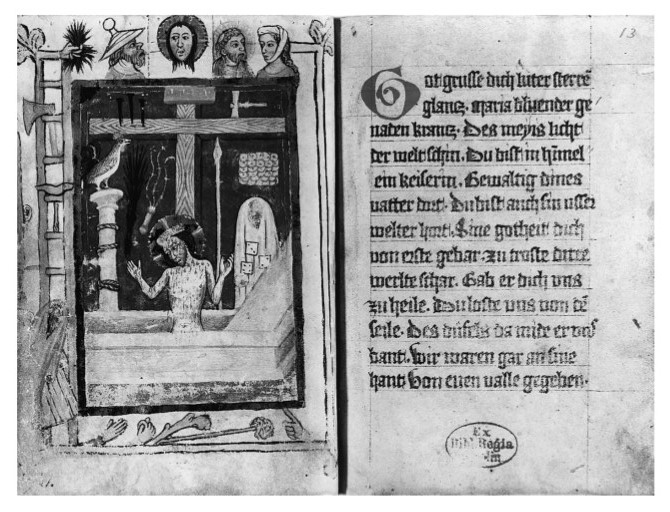 13
Got grusse dich luter sterrē
glantz. Maria bluender ge
naden krantz. Des meyis licht
der welt schin. Du bist in hīmel
ein keiserin. Gewaltig dines
vatter dort. Du bist auch sin usser
welter hort. Sine gotheit dich
von erste gebar. zu troste dirre
werlte schar. Gab er dich vns
zu heile. Du loste vns von dē
seile. Des dufels da mide er vns
bant. wir waren gar an sine
hant. Von euen valle gegeben.
Ex
Regia